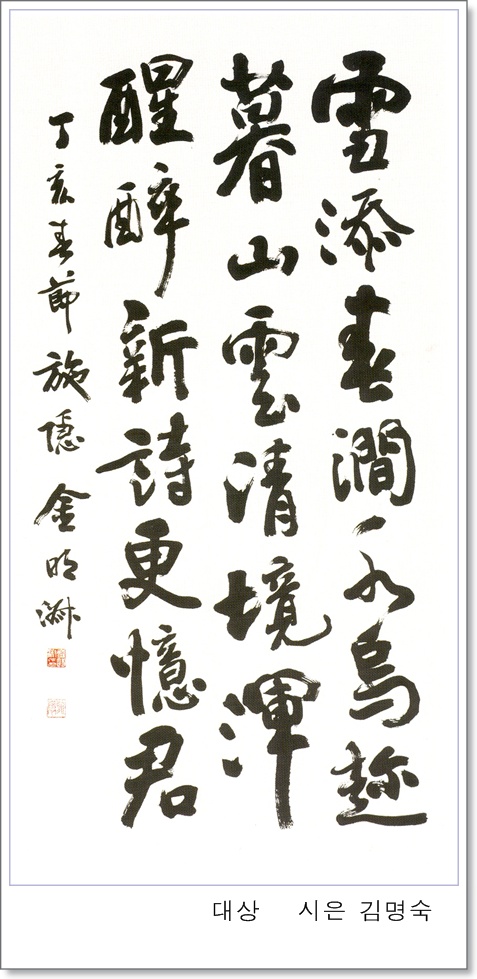 雪添春澗水烏趂
暮山雲清境渾
醒醉新詩更憶君
丁亥春節 施隱 金明淑
대상 시은 김명숙